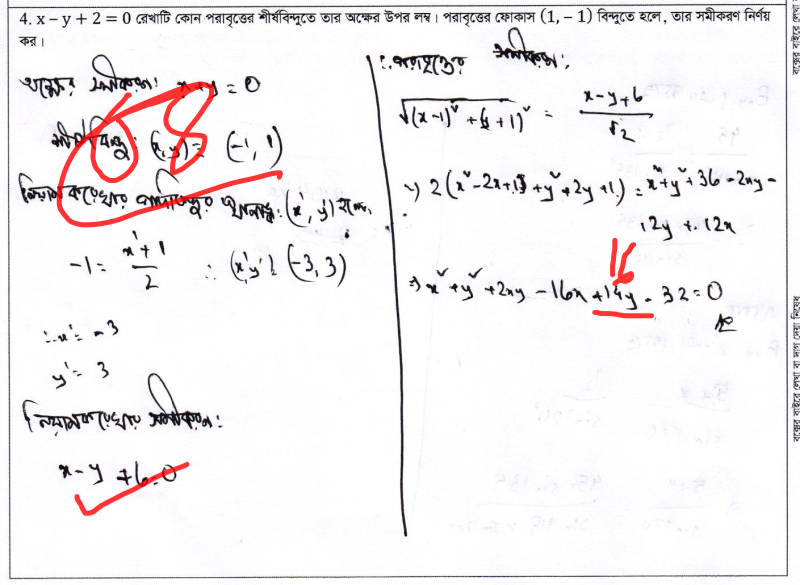 4. x – y + 2 = 0 রেখাটি কোন পরাবৃত্তের শীর্ষবিন্দুতে তার অক্ষের উপর লম্ব। পরাবৃত্তের ফোকাস (1, – 1) বিন্দুতে হলে, তার সমীকরণ নির্ণয়
কর।
অক্ষের সমীকরণ: x+y = 0
শীর্ষবিন্দু: (x,y) = (-1, 1)
8
নিয়ামকরেখার পাদবিন্দুর স্থানাঙ্ক: (x', y') হলে,
-1 = (x'+1)/2 ∴ (x'y') = (-3, 3)
∴ x' = -3
y' = 3
নিয়ামকরেখার সমীকরণ:
x-y +6=0
∴ পরাবৃত্তের সমীকরণ:
√((x-1)² + (y+1)²) = (x-y+6)/√2
⇒ 2(x² -2x+1 + y² +2y+1) = x²+y²+36 -2xy -
12y + 12x
16
⇒ x² + y² + 2xy -16x +14y - 32 = 0